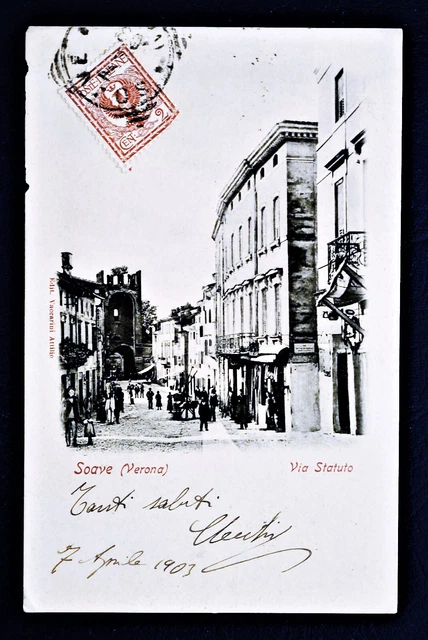 CENT. 2
Edit. Vaccarini Attilio
Soave (Verona)
Via Statuto
Tanti saluti
7 Aprile 1903